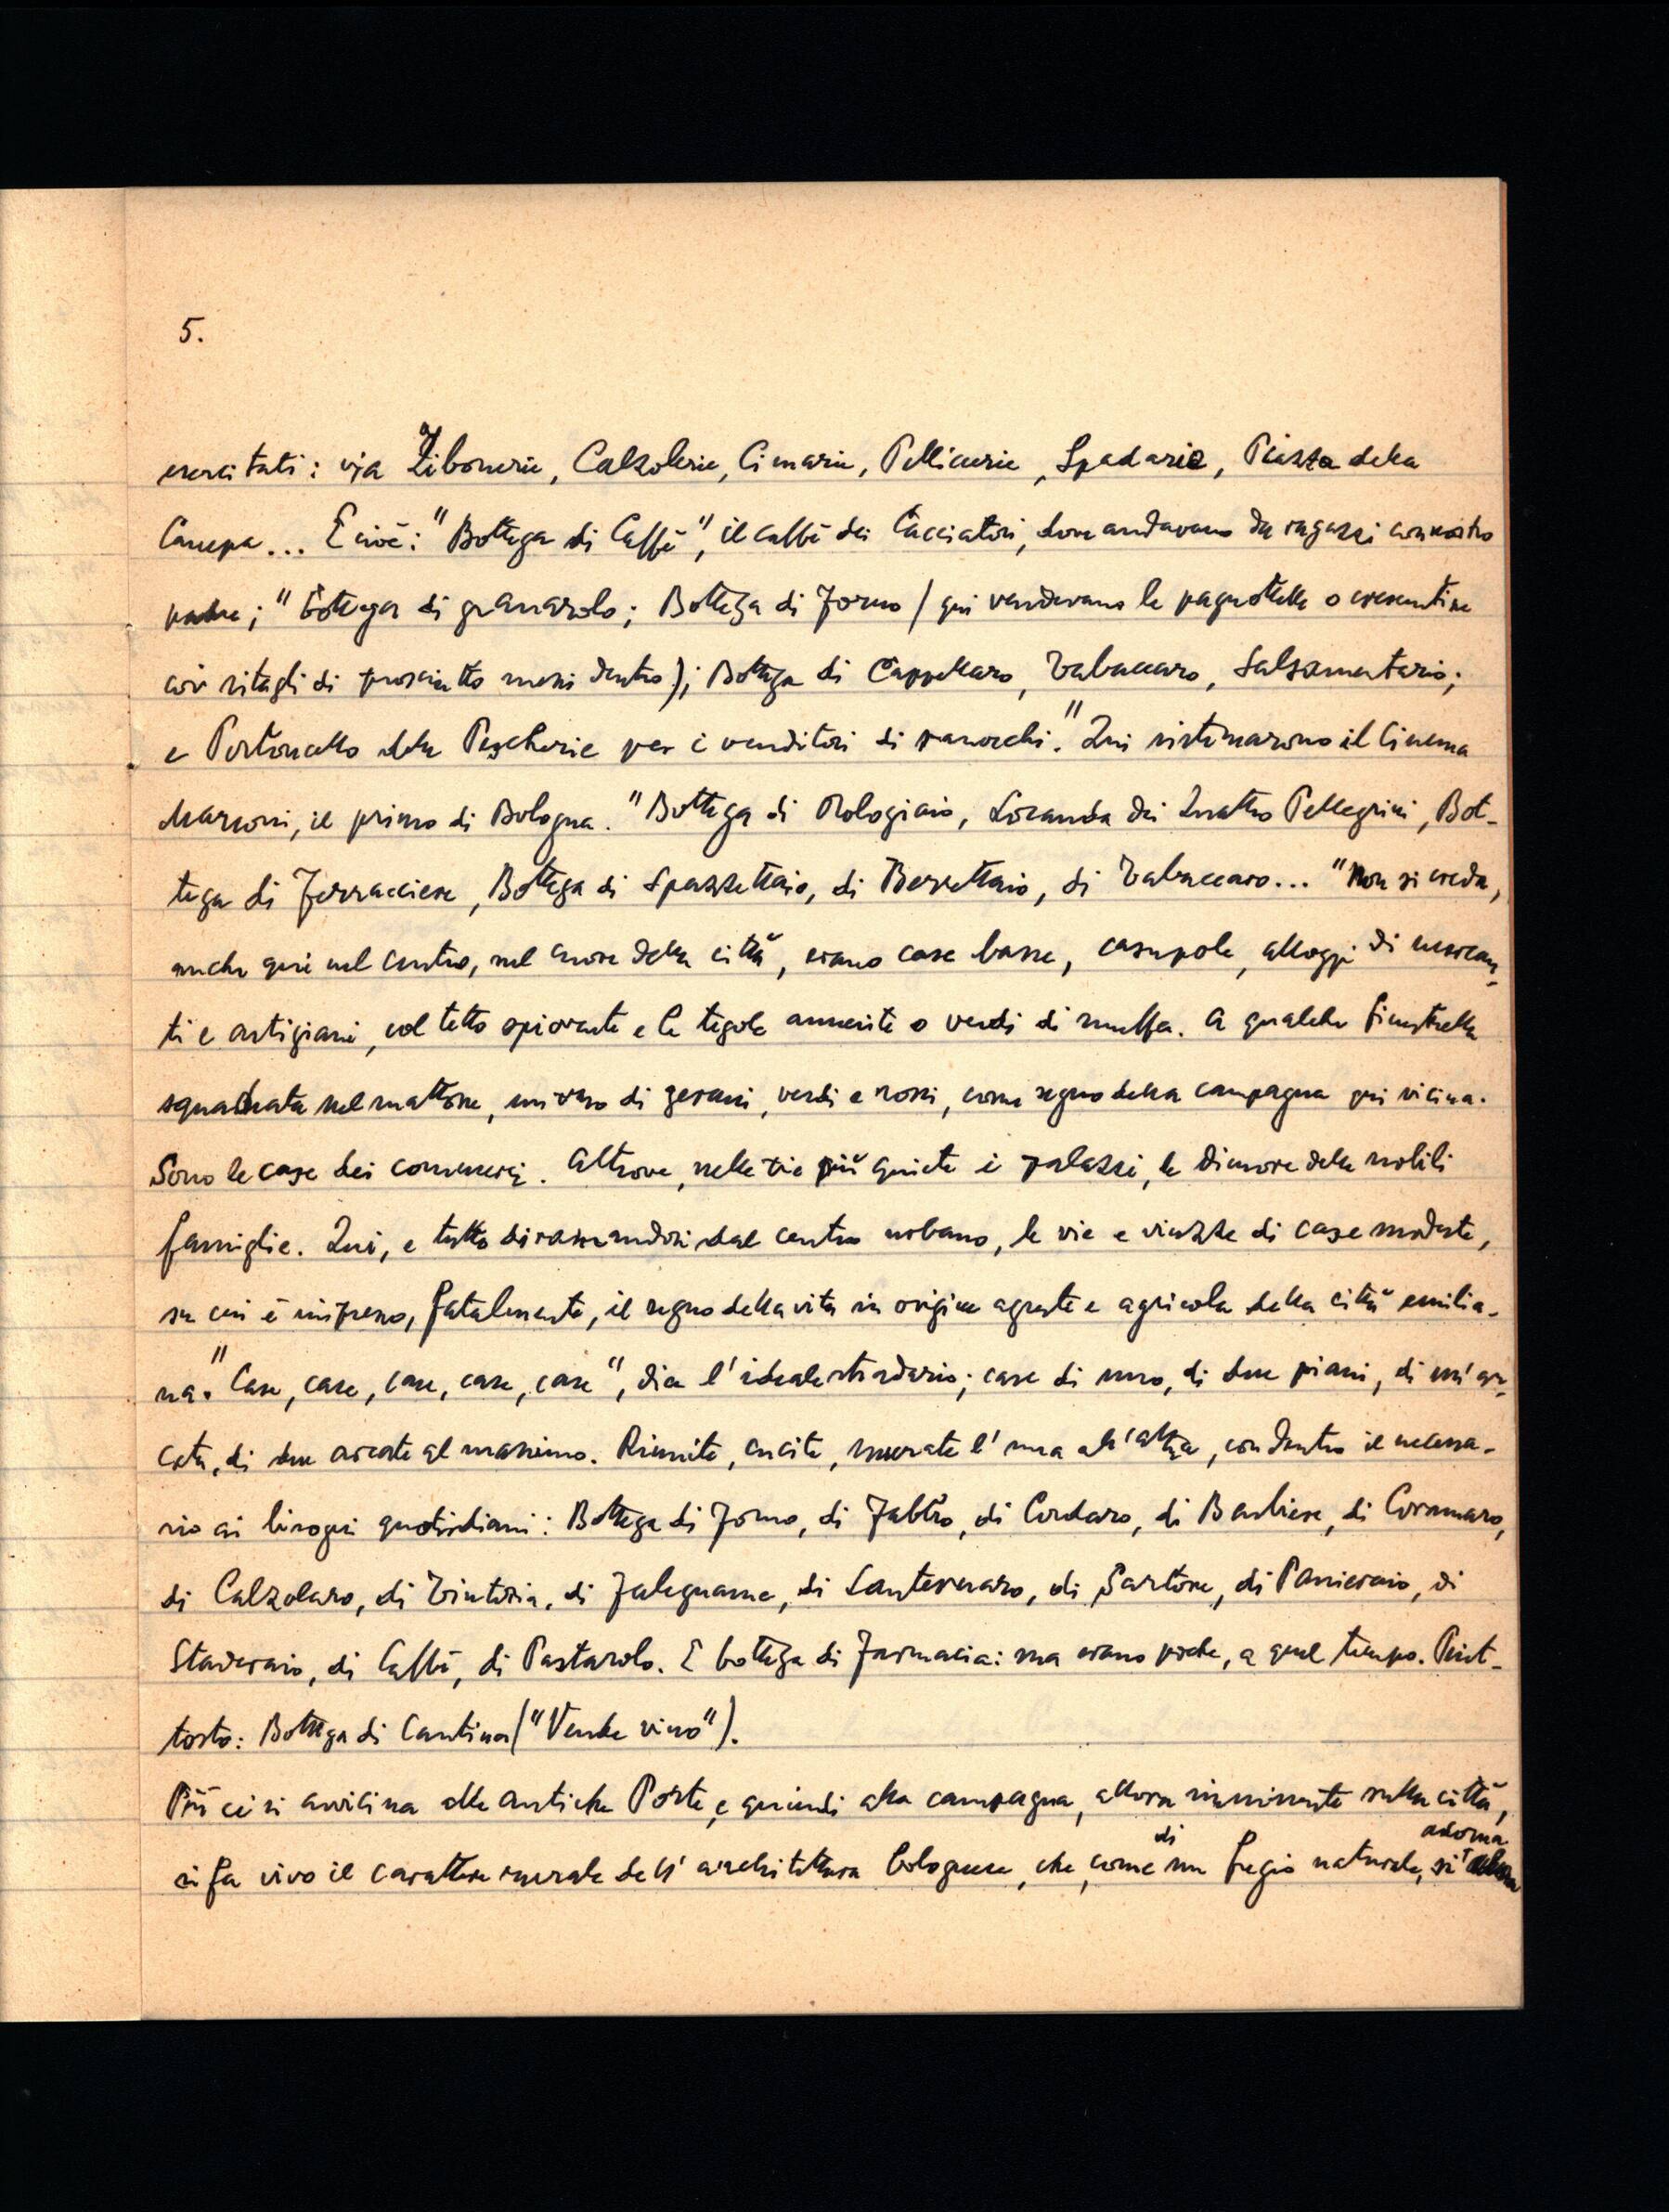 5.
esercitati: via Zibonerie, Calzolerie, Cimarie, Pellicerie, Spadarie, Piazza della
Canepa... E cioè: "Bottega di Caffè", il caffè dei Cacciatori, dove andavamo da ragazzi con nostro
padre; "Bottega di granarolo; Bottega di Forno (qui vendevano le pagnottelle o crescentine
coi ritagli di prosciutto messi dentro); Bottega di Cappellaro, Tabaccaro, Salsamentario;
e Portoncello delle Pescherie per i venditori di ranocchi." Qui sistemarono il Cinema
Marconi, il primo di Bologna. "Bottega di Orologiaio, Locanda dei Quattro Pellegrini, Bot-
tega di Ferracciere, Bottega di Spazzettaio, di Berrettaio, di Tabaccaro... "Non si creda,
anche qui nel centro, nel cuore della città, erano case basse, casupole, alloggi di mercan-
ti e artigiani, col tetto spiovente e le tegole annerite o verdi di muffa. A qualche finestrella
squadrata nel mattone, un vaso di gerani, verdi e rossi, come segno della campagna qui vicina.
Sono le case dei commerci. Altrove, nelle vie più quiete i palazzi, le dimore delle nobili
famiglie. Qui, e tutto diramandosi dal centro urbano, le vie e viuzze di case modeste,
su cui è impresso, fatalmente, il segno della vita in origine agreste e agricola della città emilia-
na. "Case, case, case, case, case", dice l'ideale stradario; case di uno, di due piani, di un'ar-
cata, di due arcate al massimo. Riunite, cucite, murate l'una all'altra, con dentro il necessa-
rio ai bisogni quotidiani: Bottega di Forno, di Fabbro, di Cordaro, di Barbiere, di Corammaro,
di Calzolaro, di Tintoria, di Falegname, di Lanternaro, di Sartore, di Panieraio, di
Staderaio, di Caffè, di Pastarolo. E bottega di Farmacia: ma erano poche, a quel tempo. Piut-
tosto: Bottega di Cantina ("Vende vino").
Più ci si avvicina alle antiche Porte, e quindi alla campagna, allora imminente sulla città,
si fa vivo il carattere murale dell'architettura bolognese, che, come di un fregio naturale, si adorna